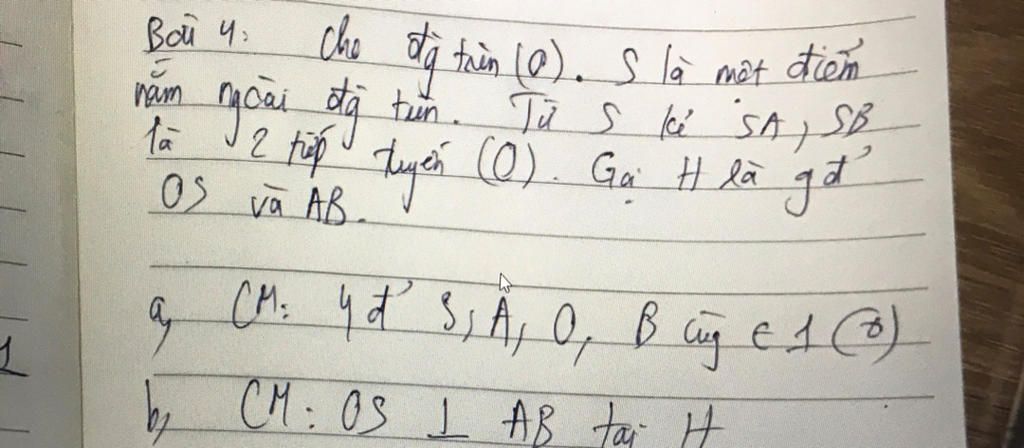 Bài 4: Cho đg tròn (O). S là một điểm
nằm ngoài đg tròn. Từ S kẻ SA, SB
là 2 tiếp tuyến (O). Gọi H là gđ'
OS và AB.
a, CM: 4 đ' S, A, O, B cùg ∈ 1 (O)
b, CM: OS ⊥ AB tại H
1